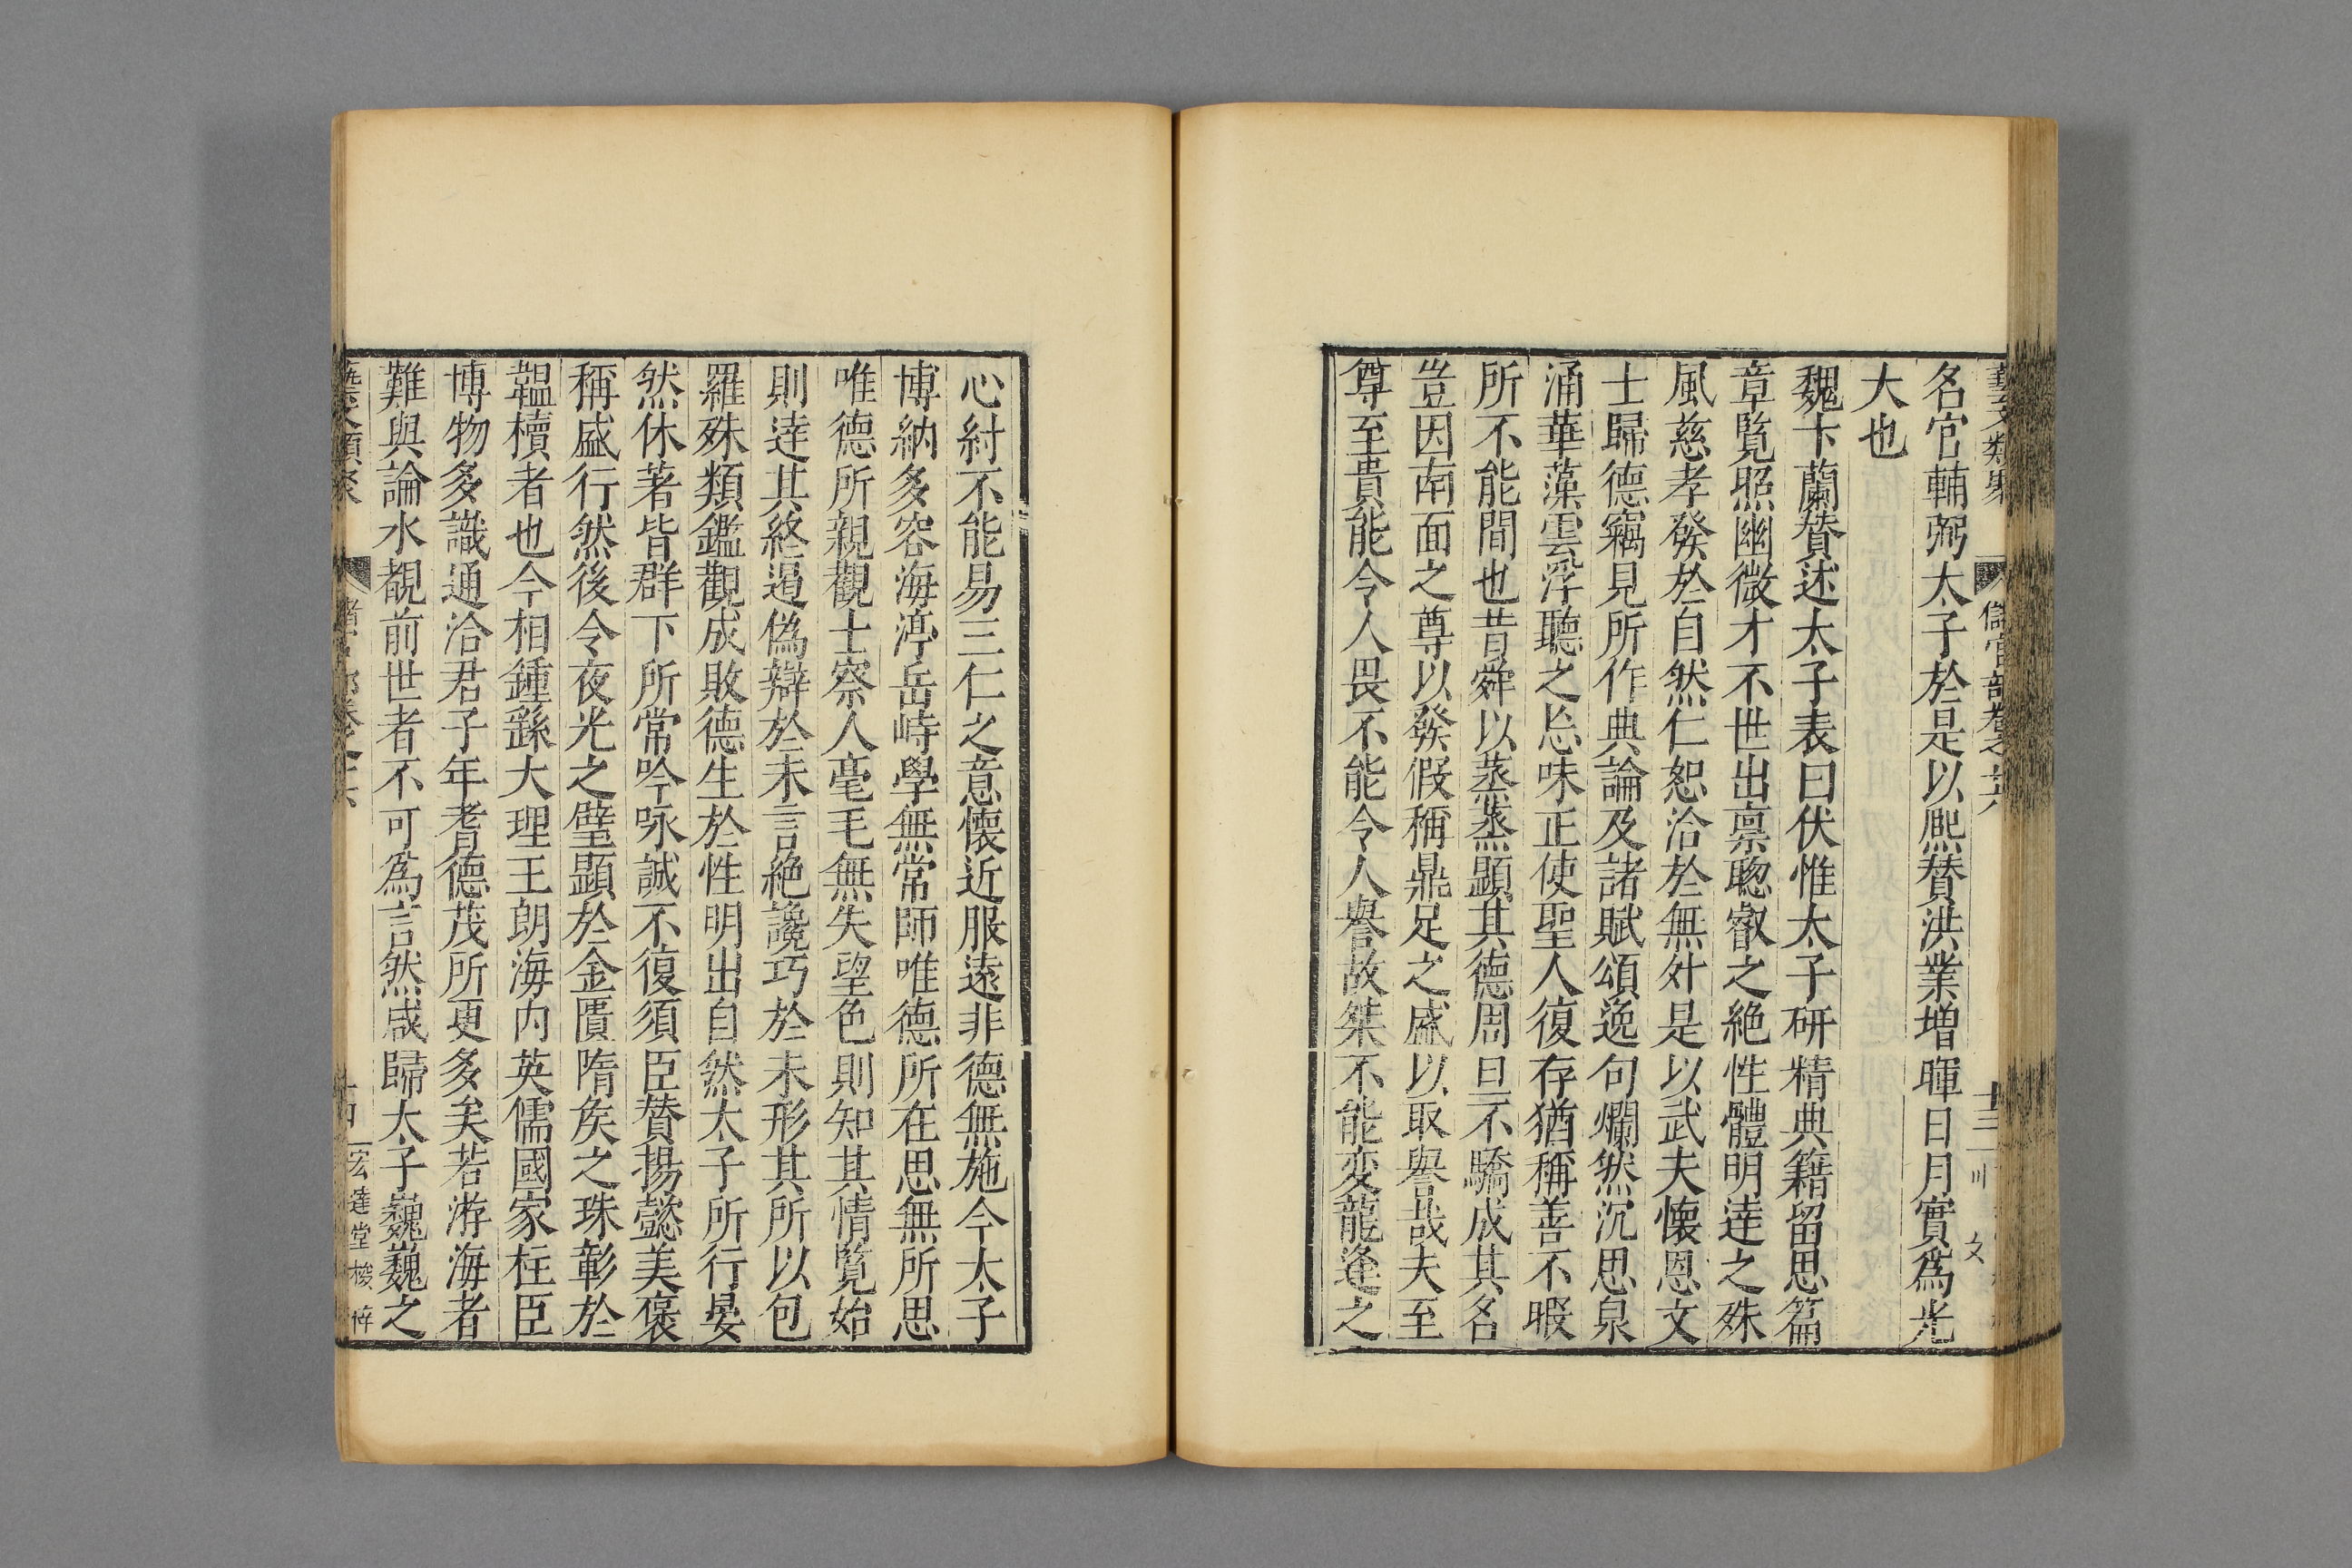 藝文類聚 儲宮部卷之十六 十三
名官輔弼太子於是以熈賛洪業增暉日月實爲光
大也
魏卞蘭賛述太子表曰伏惟太子研精典籍留思篇
章覽照幽微才不世出禀聦叡之絶性體明逹之殊
風慈孝發於自然仁恕洽於無外是以武夫懷恩文
士歸德竊見所作典論及諸賦頌逸句爛然沉思泉
涌華藻雲浮聽之忘味正使聖人復存猶稱善不暇
所不能間也昔舜以蒸蒸顯其德周旦不驕成其名
豈因南面之尊以發假稱鼎足之盛以取譽哉夫至
尊至貴能令人畏不能令人譽故桀不能変龍逢之
心紂不能易三仁之意懷近服遠非德無施今太子
博納多容海渟岳峙學無常師唯德所在思無所思
唯德所親觀士察人毫毛無失望色則知其情覽始
則逹其終遏偽辯於未言絶讒巧於未形其所以包
羅殊類鑑觀成敗德生於性明出自然太子所行晏
然休著皆群下所常吟咏誠不復須臣賛揚懿美褒
稱盛行然後令夜光之璧顯於金匱隋矦之珠彰於
韞櫝者也今相鍾繇大理王朗海内英儒國家柱臣
博物多識通洽君子年耆德茂所更多矣若游海者
難與論水覩前世者不可爲言然咸歸太子巍巍之
藝文類聚 儲宮部卷之十六 十四 宏達堂梭梓